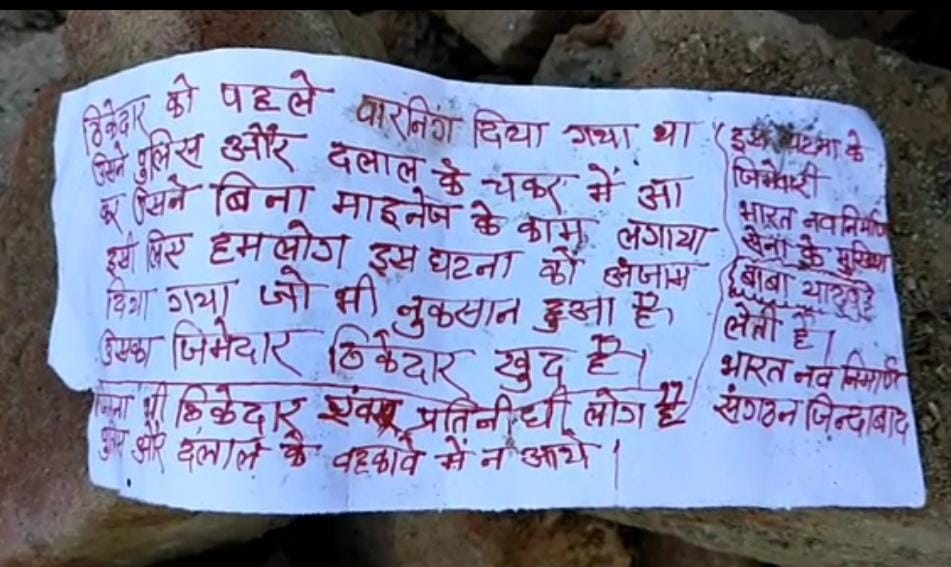 ठिकेदार को पहले वारनिंग दिया गया था
उसने पुलिस और दलाल के चकर में आ
कर उसने बिना माइनेज के काम लगाया
इसी लिए हमलोग इस घटना को अंजाम
दिया गया जो भी नुकसान हुआ है,
उसका जिमेदार ठिकेदार खुद है।
जितना भी ठिकेदार एवम प्रतिनीधी लोग है
पुलिस और दलाल के वहकावे में न आये।
इस घटना के
जिमेवारी
भारत नव निर्माण
सेना के मुखिया
बाबा
लेती है।
भारत नव निर्माण
संगठन जिन्दाबाद